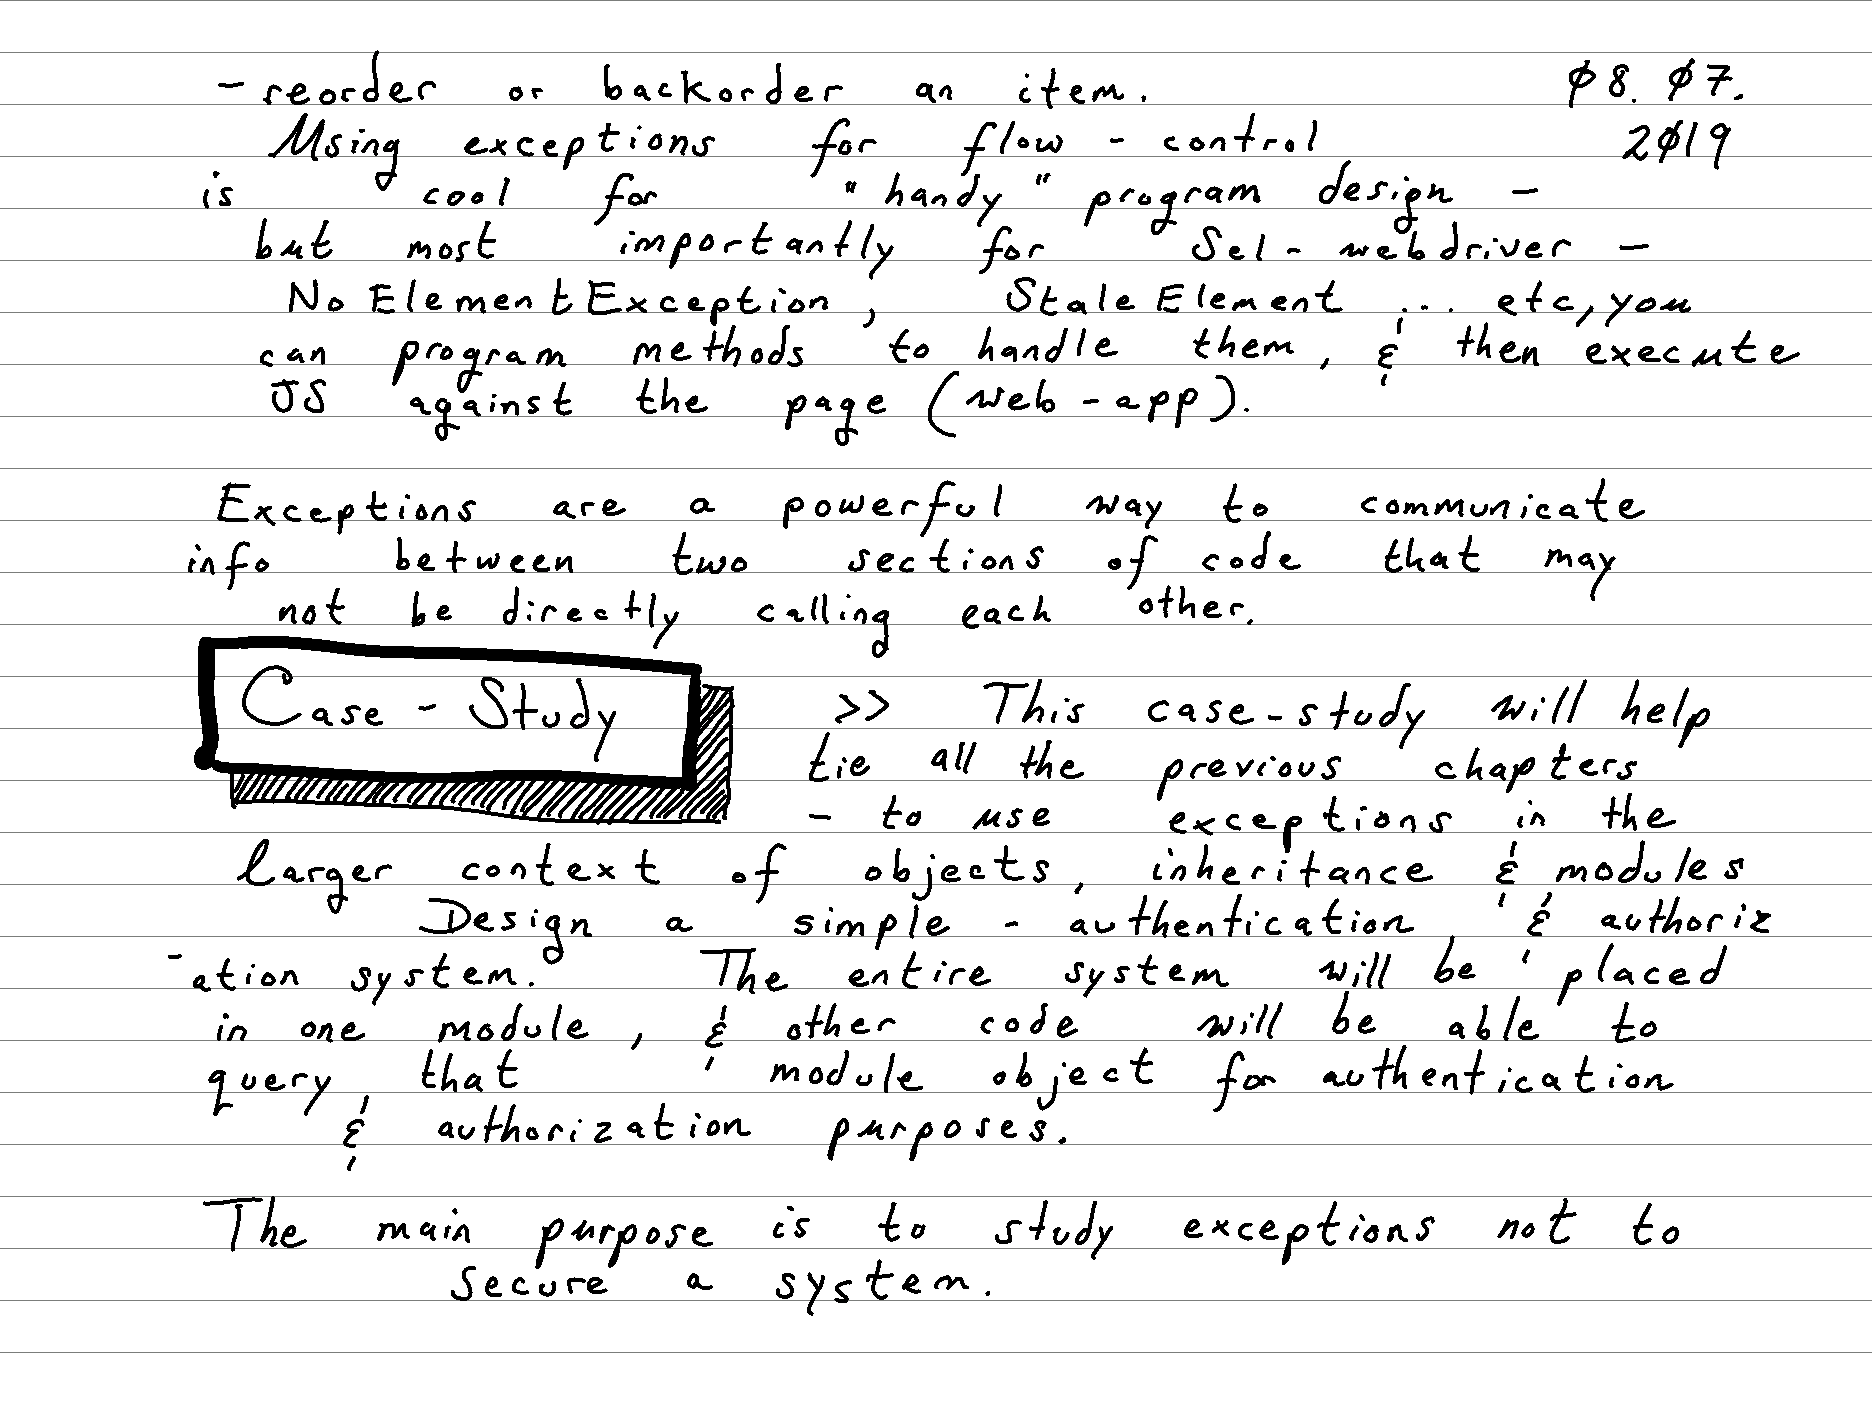 - reorder or backorder an item. Ø8. Ø7.
Using exceptions for flow - control 2Ø19
is cool for "handy" program design -
but most importantly for Sel - webdriver -
No Element Exception, Stale Element ... etc, you
can program methods to handle them, & then execute
JS against the page (web - app).
Exceptions are a powerful way to communicate
info between two sections of code that may
not be directly calling each other.
Case - Study >> This case-study will help
tie all the previous chapters
- to use exceptions in the
larger context of objects, inheritance & modules
Design a simple - authentication & authoriz
-ation system. The entire system will be placed
in one module, & other code will be able to
query that module object for authentication
& authorization purposes.
The main purpose is to study exceptions not to
secure a system.